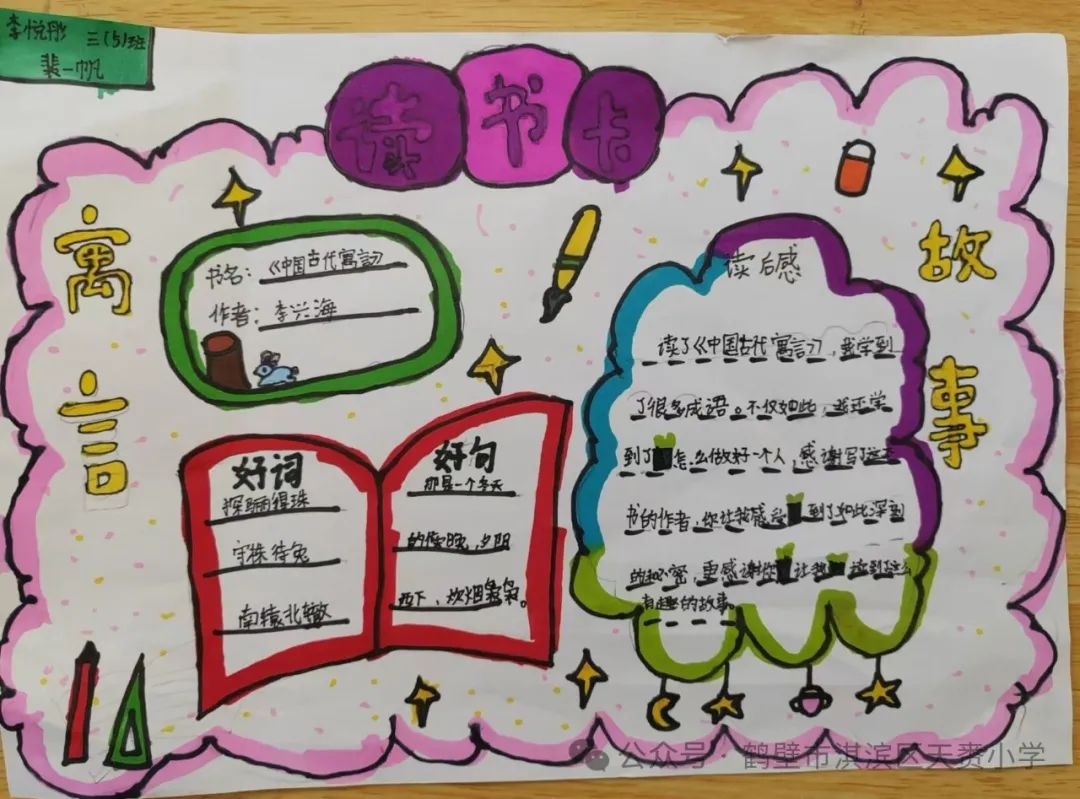 李悦彤 三(5)班
裴一帆
读书卡
寓言
故事
书名：《中国古代寓言》
作者：李兴海
好词
探骊得珠
守株待兔
南辕北辙
好句
那是一个冬天
的傍晚，夕阳
西下，炊烟袅袅。
读后感
读了《中国古代寓言》，我学到
了很多成语。不仅如此，我还学
到了怎么做好一个人，感谢写这本
书的作者，你让我感受到了如此深刻
的 感谢你让我 到这么
有趣的故事。
公众号·鹤壁市淇滨区天赉小学